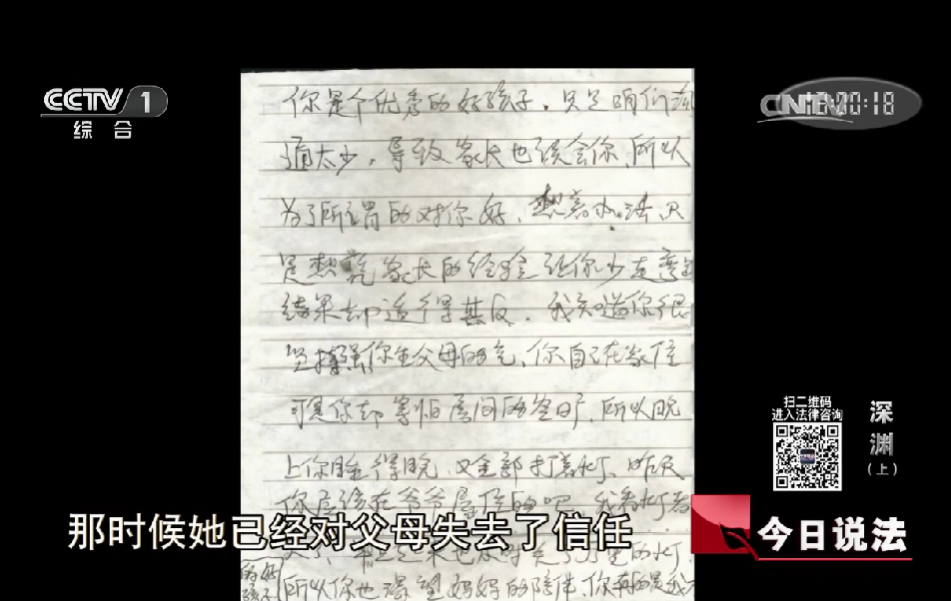 CCTV 1
综合
12:00:18
你是个优秀的好孩子，只是咱们沟
通太少，导致家长也误会你，所以
为了所谓的对你好，想着办法只
是想凭家长的经验让你少走弯
结果却适得其反，我知道你很
坚强 你生父母的气，你自己在家住
可是你却害怕房间的空旷，所以晚
上你睡得晚，又全部打着灯，昨天
你应该在爷爷屋住的吧，我看灯
的好
孩子
所以你也渴望妈妈的陪伴，你
那时候她已经对父母失去了信任
扫二维码
进入法律咨询
深渊
（上）
今日说法